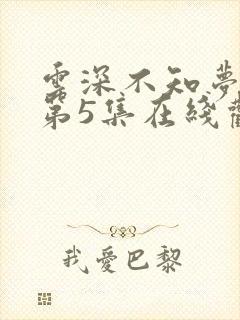 雲深不知夢
第5集在綫觀
我愛巴黎